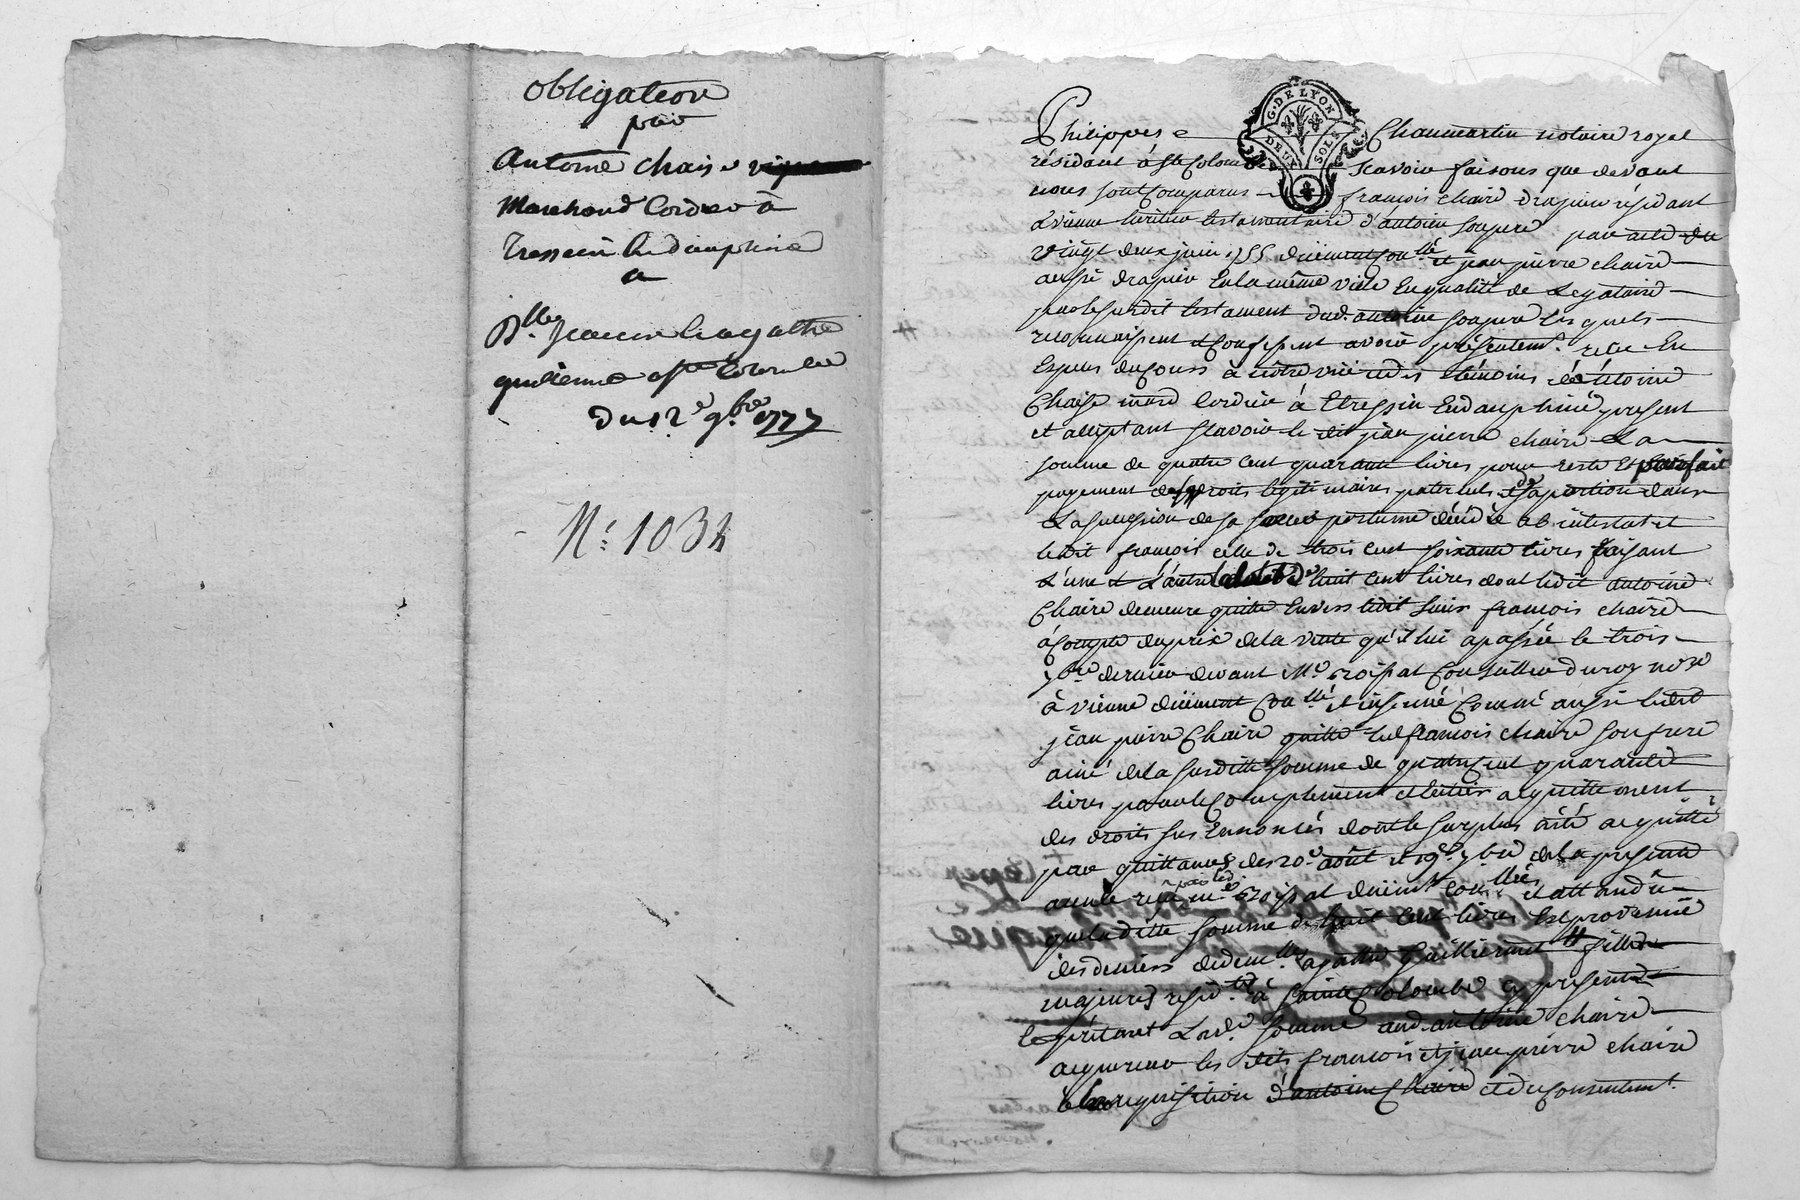 obligation
par
Antoine Chaise
Marchand Cordier à
Tressein En dauphiné
a
Dlle
guillermet a Ste Colombe
Du 12e 9bre 1777
N: 1034
G. DE LYON
DEUX SOLS
Philippes Chaumartin notaire royal
résidant à Ste Colombe scavoir faisons que devant
nous sont Comparus françois chaire drapier résidant
à vienne héritier testamentaire d'antoine son pere par acte du
vingt deux juin 1755 düement conllé et jean pierre chaire
aussi drapier En la même ville En qualité de Légataire
par le susdit testament dud. antoine son pere Les quels
reconnaissent et Confessent avoir présentemt. reçu En
Espèces du Cours à nôtre vüe et des témoins de antoine
Chaise mard Cordier à Tressin En dauphiné present
et acceptant scavoir le dit jean pierre chaire La
somme de quatre cent quarante livres pour reste Et parfait
payement de ses droits légitimaires paternels et de sa portion dans
La succession de sa soeur postume décédée ab intestat et
le dit françois celle de trois cent soixante livres faisant
L'une et L'autre celle de huit cent livres dont ledit antoine
Chaire demeure quitte Envers ledit sieur françois chaire
à Compte du prix de la vente qu'il lui a passée le trois
7bre dernier devant Me roissat Conseiller du roy nore
à vienne düement Conllé et insinué Comme aussi ledit
jean pierre Chaire quitte led françois chaire son frere
ainé de la susditte somme de quatre cent quarante
livres pour le Complement et Entier acquittement
des droits sus Ennoncés dont le surplus a été acquitté
par quittances des 20e août et 19e 7bre de la presente
année reçues par led. Me roissat düemt Conllées et attandû
que la ditte somme de huit cent livres Est provenüe
des deniers de demlle agathe Guillermet fille
majeure residte à Sainte Colombe cy presente
Le prêtant Lade. somme aud antoine chaire
acquereur les dits françois et jean pierre chaire
à la requisition d'antoine Chaire et du Consentemt.